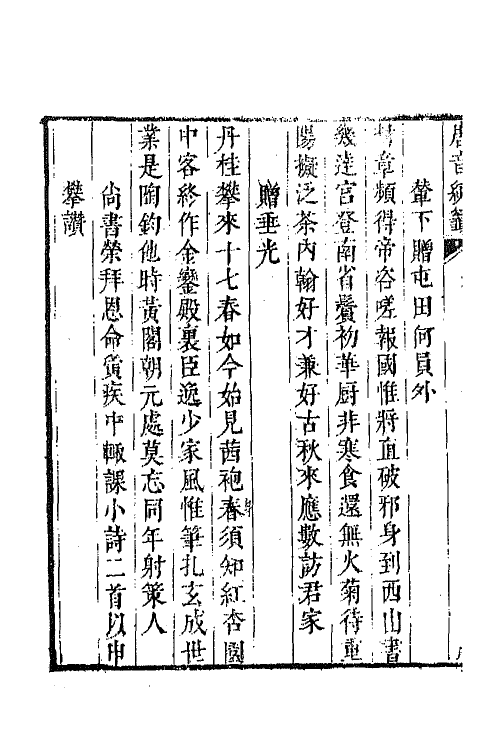 唐音統籤
輦下贈屯田何員外
封章頻得帝咨嗟報國惟將直破邪身到西山書
幾達官登南省鬢初華厨非寒食還無火菊待重
陽擬泛茶內翰好才兼好古秋來應數訪君家
贈垂光
丹桂攀來十七春如今始見茜袍新須知紅杏園
中客終作金鑾殿裏臣逸少家風惟筆札玄成世
業是陶鈞他時黃閣朝元處莫忘同年射策人
尚書榮拜恩命夤疾中輙課小詩二首以申
攀讃